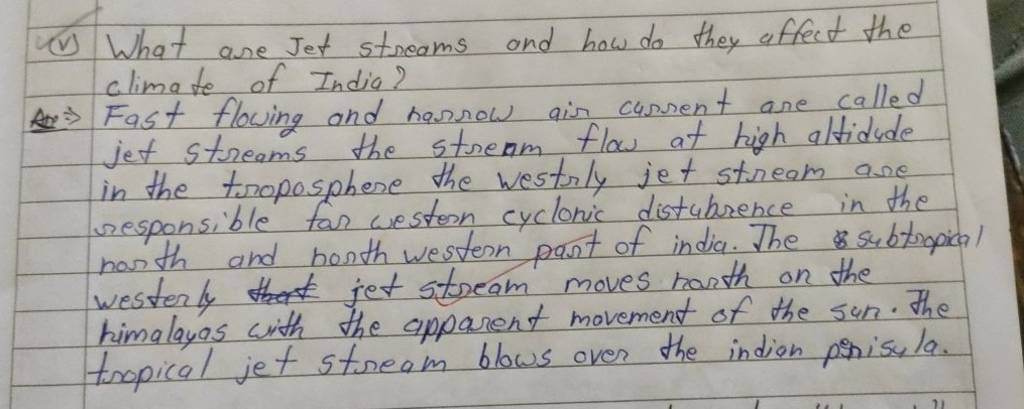 (v) What are Jet streams and how do they affect the
climate of India?
Ans⇒ Fast flowing and narrow air current are called
jet streams the stream flow at high altidude
in the troposphere the westrly jet stream are
responsible for western cyclonic distubrence in the
north and north western part of india. The subtropical
westerly jet stream moves north on the
himalayas with the apparent movement of the sun. The
tropical jet stream blows over the indian penisula.